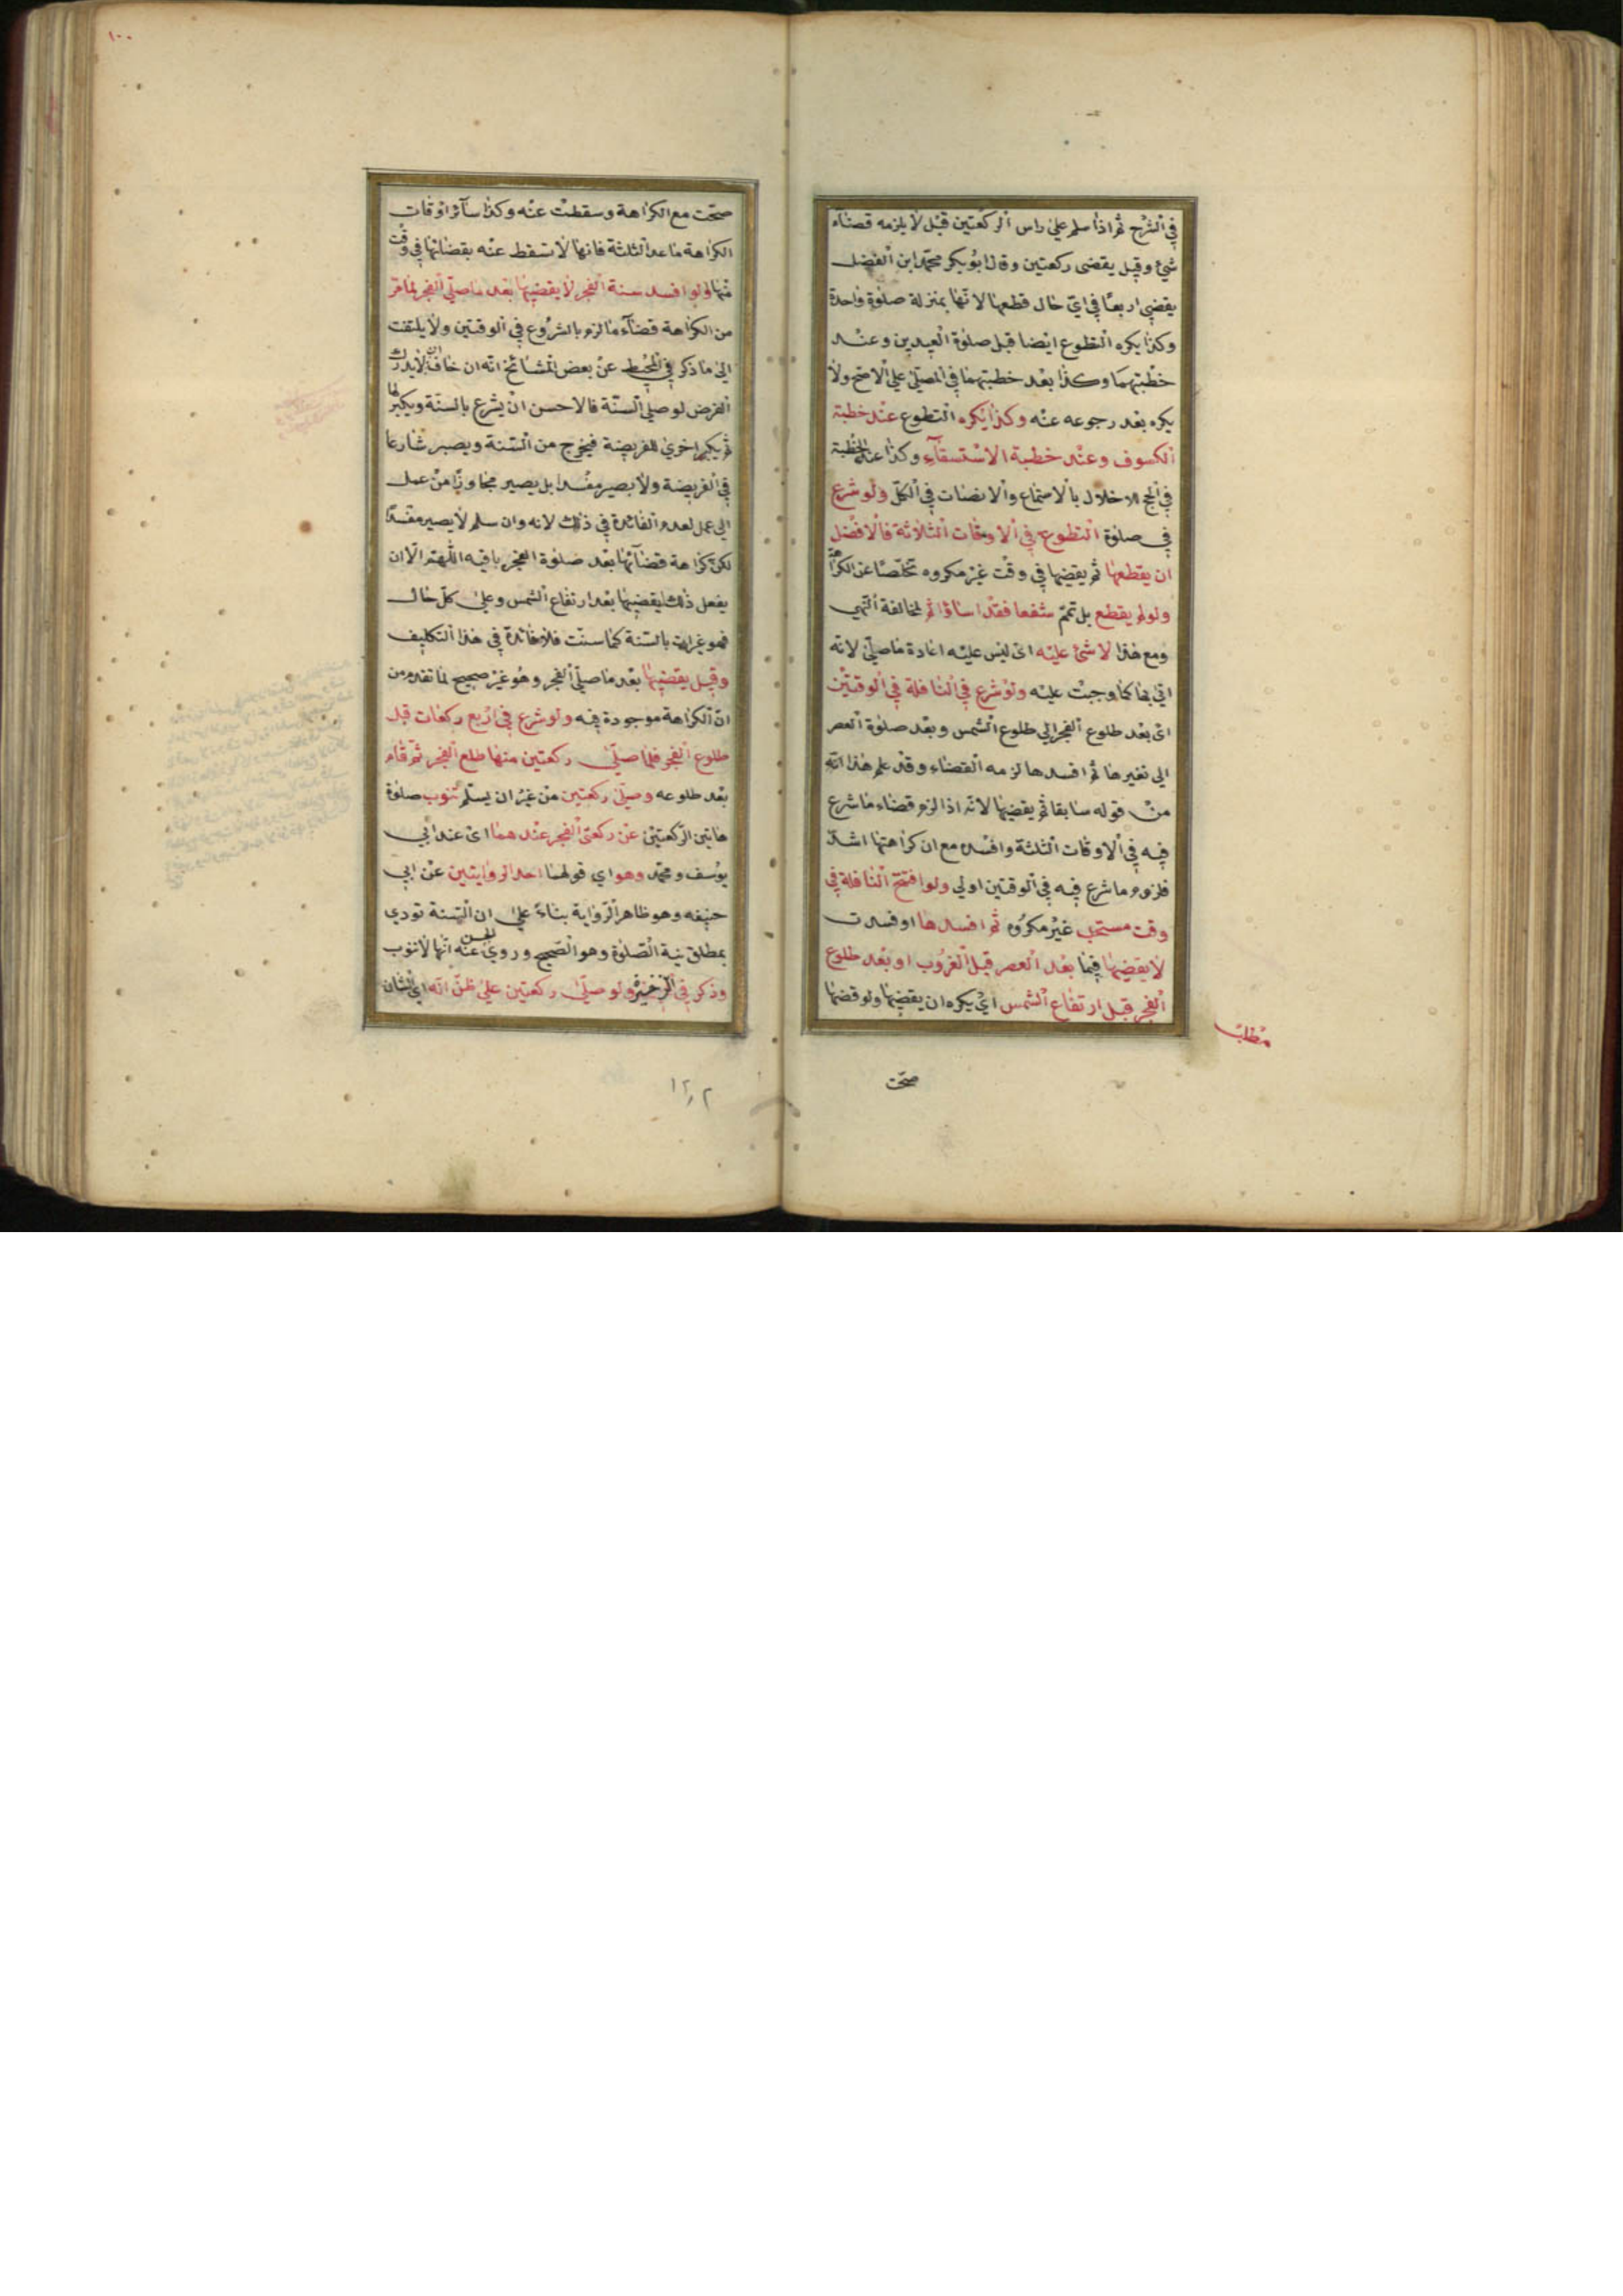 في الشرح ثم اذا سلم على راس الركعتين قيل لا يلزمه قضآء
شئ وقيل يقضى ركعتين وقال ابو بكر محمد ابن الفضل
يقضي اربعا في اي حال قطعها لانها بمنزلة صلوة واحدة
وكذا يكره التطوع ايضا قبل صلوة العيدين وعند
خطبتهما وكذا بعد خطبتهما في المصلى على الاصح ولا
يكره بعد رجوعه عنه وكذا يكره التطوع عند خطبة
الكسوف وعند خطبة الاستسقآء وكذا عند الخطبة
في الحج للاخلال بالاستماع والانصات في الكل ولو شرع
في صلوة التطوع في الاوقات الثلاثة فالافضل
ان يقطعها ثم يقضيها في وقت غير مكروه تخلصا عن الكراهة
ولو لم يقطع بل تمم شفعا فقد اساؤ اثم لمخالفة النهي
ومع هذا لا شئ عليه اى ليس عليه اعادة ما صلى لانه
اتي بها كما وجبت عليه ولو شرع في النافلة في الوقتين
اى بعد طلوع الفجر الي طلوع الشمس وبعد صلوة العصر
الي تغيرها ثم افسدها لزمه القضاء وقد علم هذا انه
من قوله سابقا ثم يقضيها لانه اذا لزم قضاء ما شرع
فيه في الاوقات الثلثة وافسده مع ان كراهتها اشد
فلزوم ما شرع فيه في الوقتين اولي ولو افتتح النافلة في
وقت مستحب غير مكروه ثم افسدها او فسدت
لا يقضيها فيما بعد العصر قبل الغروب او بعد طلوع
الفجر قبل ارتفاع الشمس اي يكره ان يقضيها ولو قضها
مطلب
صحت
١٠٠
صحت مع الكراهة وسقطت عنه وكذا سآئر اوقات
الكراهة ما عدا الثلثة فانها لا تسقط عنه بقضائها في وقت
منها ولو افسد سنة الفجر لا يقضيها بعد ما صلى الفجر لما مر
من الكراهة قضآء ما لزم بالشروع في الوقتين ولا يلتفت
الى ما ذكر في المحيط عن بعض المشائخ انه ان خاف ان لا يدرك
الفرض لو صلى السنة فالاحسن ان يشرع بالسنة ويكبر لها
ثم يكبر اخرى للفريضة فيخرج من السنة ويصير شارعا
في الفريضة ولا يصير مفسدا بل يصير مجاوزا من عمل
الى عمل لعدم الفائدة في ذلك لانه وان سلم لا يصير مفسدا
لكن كراهة قضآئها بعد صلوة الفجر باقيه اللهم الا ان
يفعل ذلك ليقضيها بعد ارتفاع الشمس وعلى كل حال
فهو غير ات بالسنة كما سنت فلا فائدة في هذا التكليف
وقيل يقضيها بعد ما صلى الفجر وهو غير صحيح لما تقدم من
ان الكراهة موجودة فيه ولو شرع في اربع ركعات قبل
طلوع الفجر فلما صلى ركعتين منها طلع الفجر ثم قام
بعد طلوعه وصلى ركعتين من غير ان يسلم تنوب صلوة
هاتين الركعتين عن ركعتى الفجر عند هما اى عند ابي
يوسف ومحمد وهو اي قولهما احد الروايتين عن ابي
حنيفه وهو ظاهر الرواية بناء على ان السنة تودي
بمطلق نية الصلوة وهو الصحيح وروي الحسن عنه انها لا تنوب
وذكر في الذخيرة ولو صلى ركعتين على ظن انه اي الشان
١٢٠٢